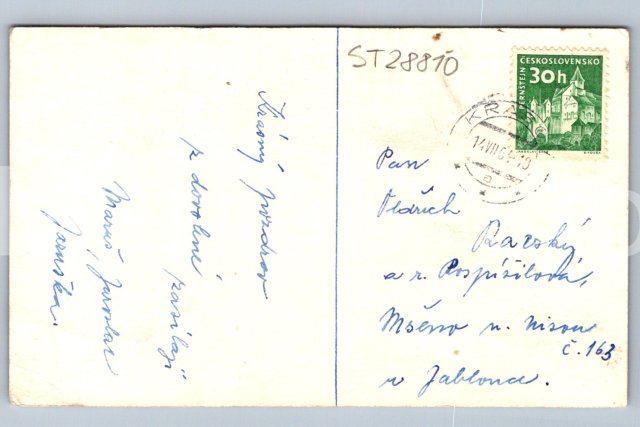 ST28810
ČESKOSLOVENSKO
30h
PERNŠTEJN
KRA
14.VII.64-19
a
Krásný pozdrav
z dovolené
zasílají
Maruš, Jaroslav
Jaruška.
Pan
Oldřich
Racský
a r. Pospíšilová,
Mšeno n. Nisou
č. 163
u Jablonce.